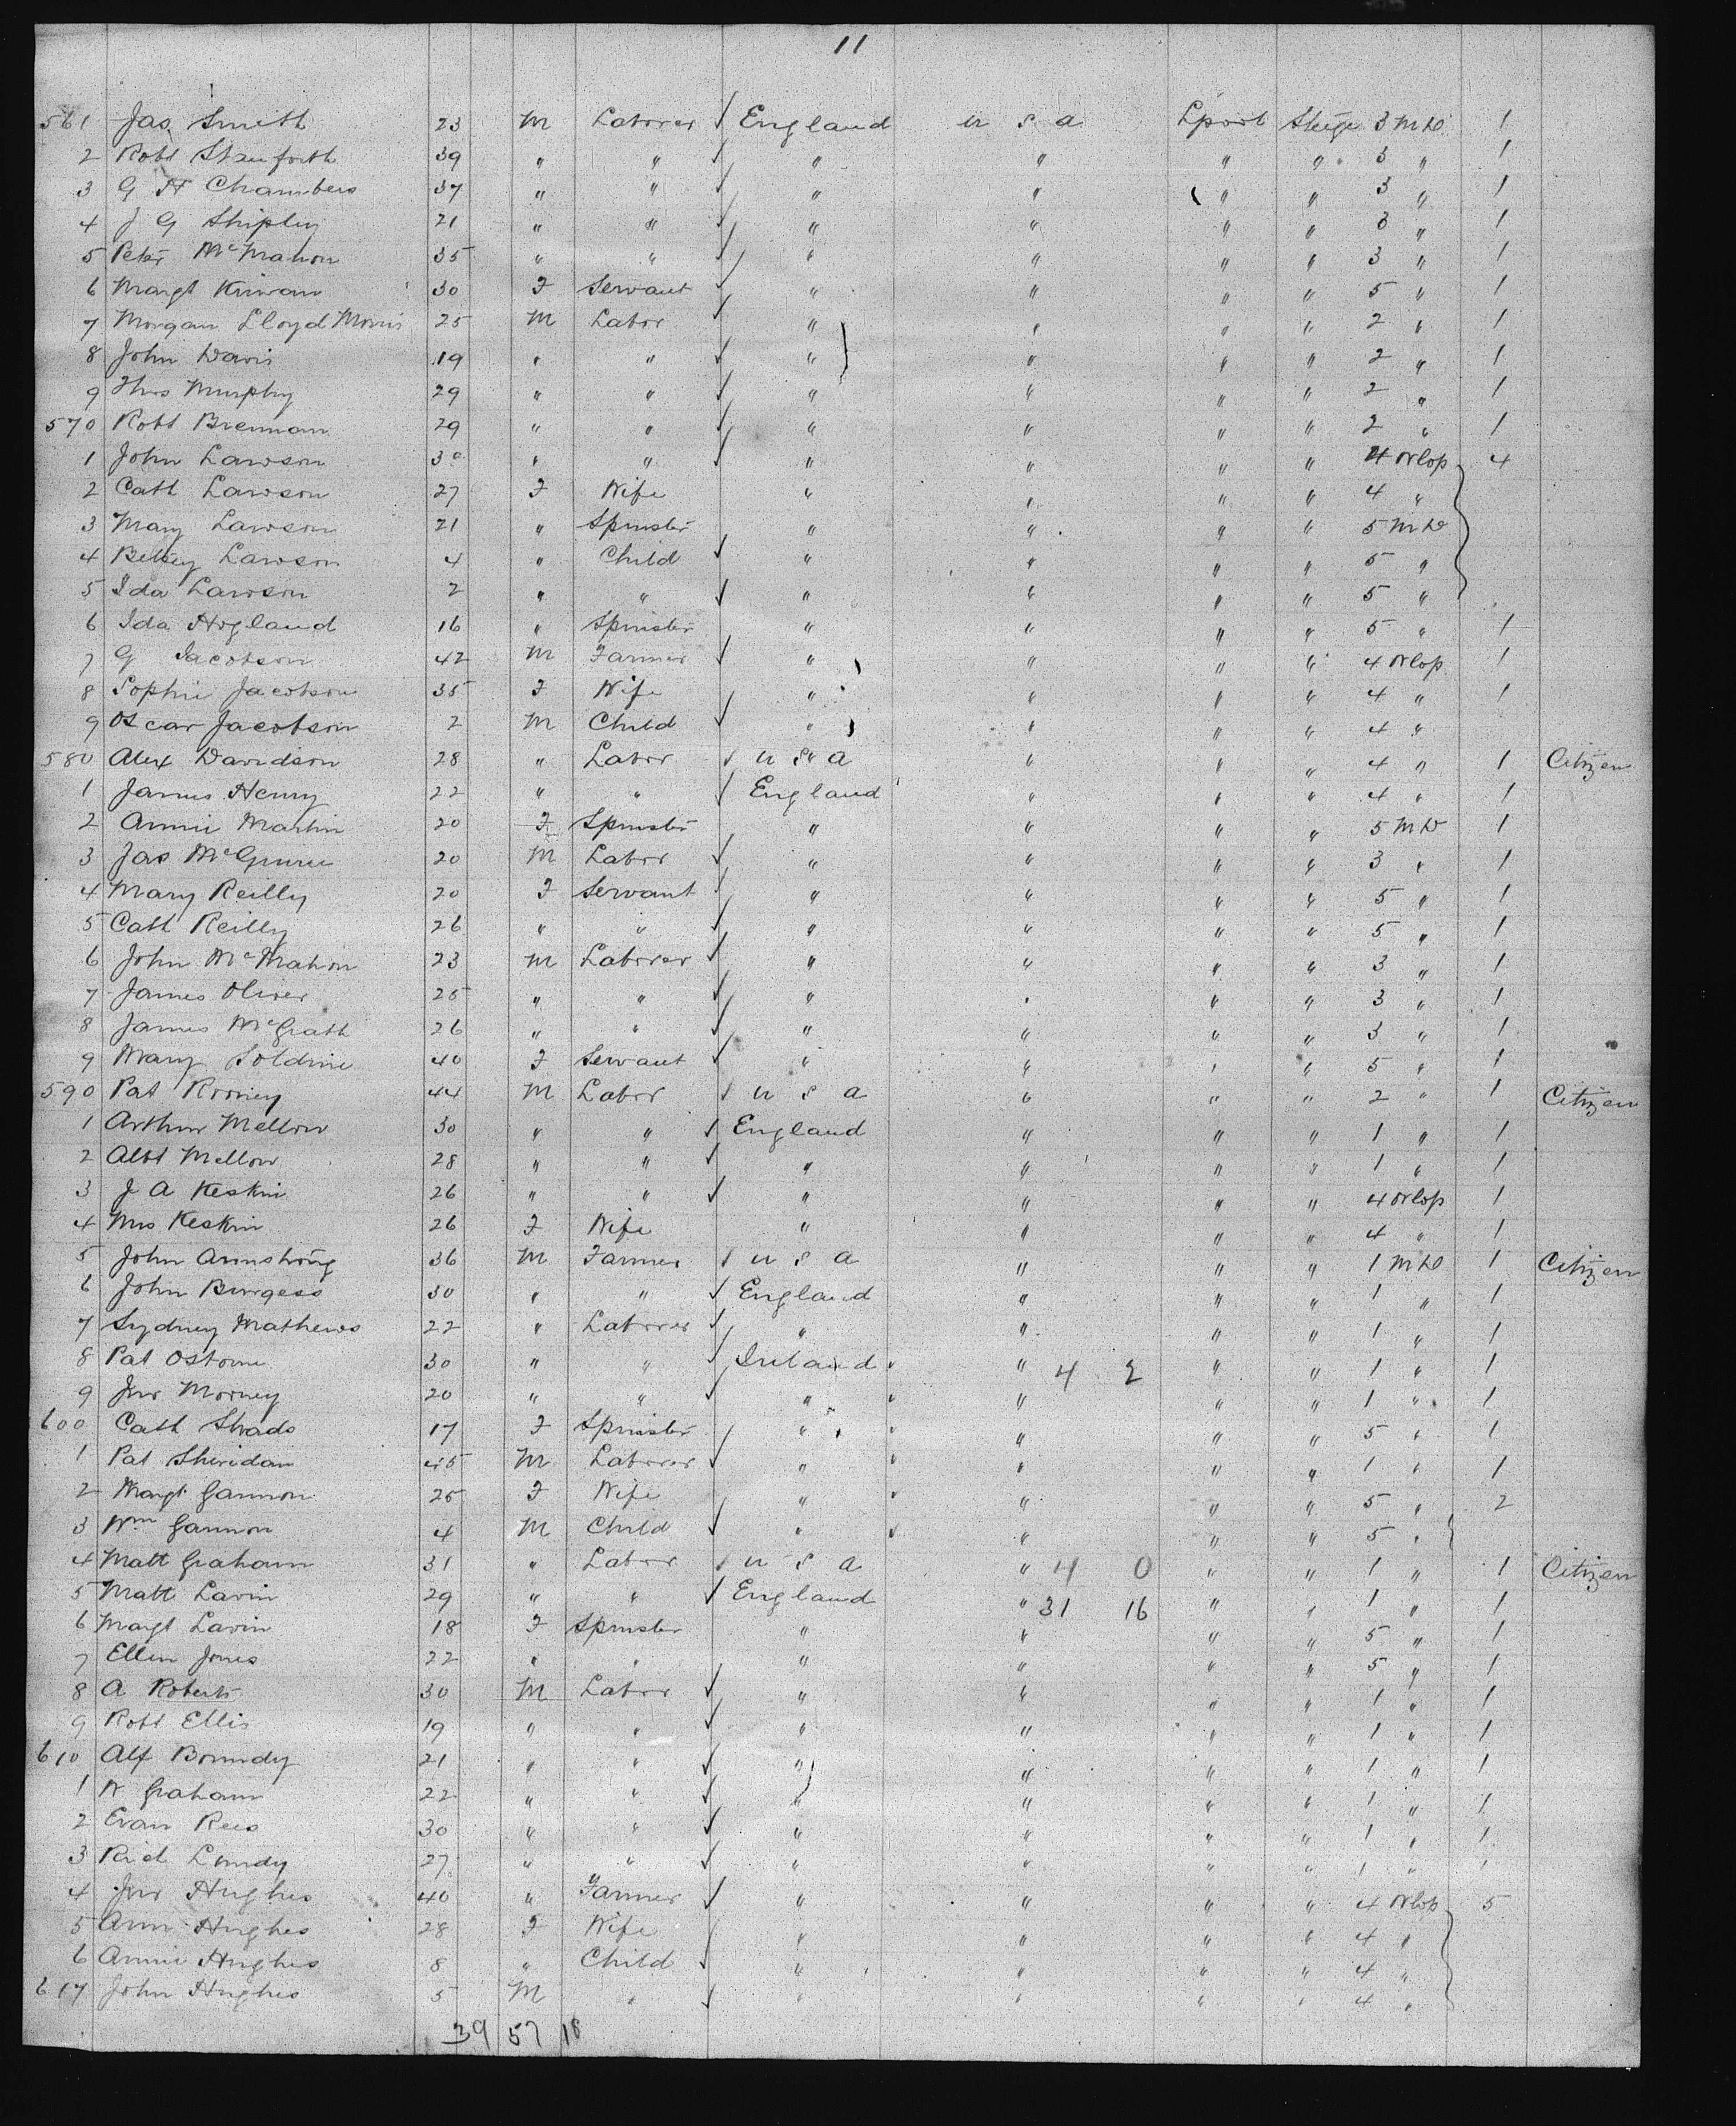 11
561 Jas Smith 23 M Laborer √ England U S A Lpool Stege 3 M D 1
2 Robt Stanforth 39 " " √ " " " " 3 " 1
3 G H Chambers 37 " " √ " " " " 3 " 1
4 J G Shipley 21 " " √ " " " " 3 " 1
5 Peter McMahon 35 " " √ " " " " 3 " 1
6 Margt Kirwan 30 F Servant √ " " " " 5 " 1
7 Morgan Lloyd Morris 25 M Labor √ " " " " 2 " 1
8 John Davis 19 " " √ " " " " 2 " 1
9 Thos Murphy 29 " " √ " " " " 2 " 1
570 Robt Brennan 29 " " √ " " " " 2 " 1
1 John Lawson 30 " " √ " " " " 4 Orlop 4
2 Cath Lawson 27 F Wife " " " " 4 "
3 Mary Lawson 21 " Spinster " " " " 5 M D
4 Betsey Lawson 4 " Child √ " " " " 5 "
5 Ida Lawson 2 " " √ " " " " 5 "
6 Ida Hogland 16 " Spinster " " " " 5 " 1
7 G Jacobson 42 M Farmer √ " " " " 4 Orlop 1
8 Sophie Jacobson 35 F Wife " " " " 4 " 1
9 Oscar Jacobson 2 M Child √ " " " " 4 "
580 Alex Davidson 28 " Labor √ U S A " " " 4 " 1 Citizen
1 James Henry 22 " " √ England " " " 4 " 1
2 Annie Martin 20 F Spinster " " " " 5 M D 1
3 Jas McGuire 20 M Labor √ " " " " 3 " 1
4 Mary Reilly 20 F Servant √ " " " " 5 " 1
5 Cath Reilly 26 " " √ " " " " 5 " 1
6 John McMahon 23 M Laborer √ " " " " 3 " 1
7 James Oliver 25 " " √ " " " " 3 " 1
8 James McGrath 26 " " √ " " " " 3 " 1
9 Mary 40 F Servant √ " " " " 5 " 1
590 Pat Rooney 44 M Labor √ U S A " " " 2 " 1 Citizen
1 Arthur Mellow 30 " " √ England " " " 1 " 1
2 Albt Mellow 28 " " √ " " " " 1 " 1
3 J A Keskin 26 " " √ " " " " 4 Orlop 1
4 Mrs Keskin 26 F Wife " " " " 4 " 1
5 John Armstrong 36 M Farmer √ U S A " " " 1 M D 1 Citizen
6 John Burgess 30 " " √ England " " " 1 " 1
7 Sydney Mathews 22 " Laborer √ " " " " 1 " 1
8 Pat Osborne 30 " " √ Ireland " 4 2 " " 1 " 1
9 Jno Mooney 20 " " √ " " " " 1 " 1
600 Cath 17 F Spinster " " " " 5 " 1
1 Pat Sheridan 45 M Laborer √ " " " " 1 " 1
2 Margt Gannon 25 F Wife " " " " 5 " 2
3 Wm Gannon 4 M Child √ " " " " 5 "
4 Matt Graham 31 " Labor √ U S A " 4 0 " " 1 " 1 Citizen
5 Matt Lavin 29 " " √ England " 31 16 " " 1 " 1
6 Margt Lavin 18 F Spinster " " " " 5 " 1
7 Ellen Jones 22 " " " " " " 5 " 1
8 A Roberts 30 M Labor √ " " " " 1 " 1
9 Robt Ellis 19 " " √ " " " " 1 " 1
610 Alf Boundy 21 " " √ " " " " 1 " 1
1 W Graham 22 " " √ " " " " 1 " 1
2 Evan Rees 30 " " √ " " " " 1 " 1
3 Rich Lundy 27 " " √ " " " " 1 " 1
4 Jno Hughes 40 " Farmer √ " " " " 4 Orlop 5
5 Ann Hughes 28 F Wife " " " " 4 "
6 Annie Hughes 8 " Child √ " " " " 4 "
617 John Hughes 5 M " √ " " " " 4 "
39 57 18